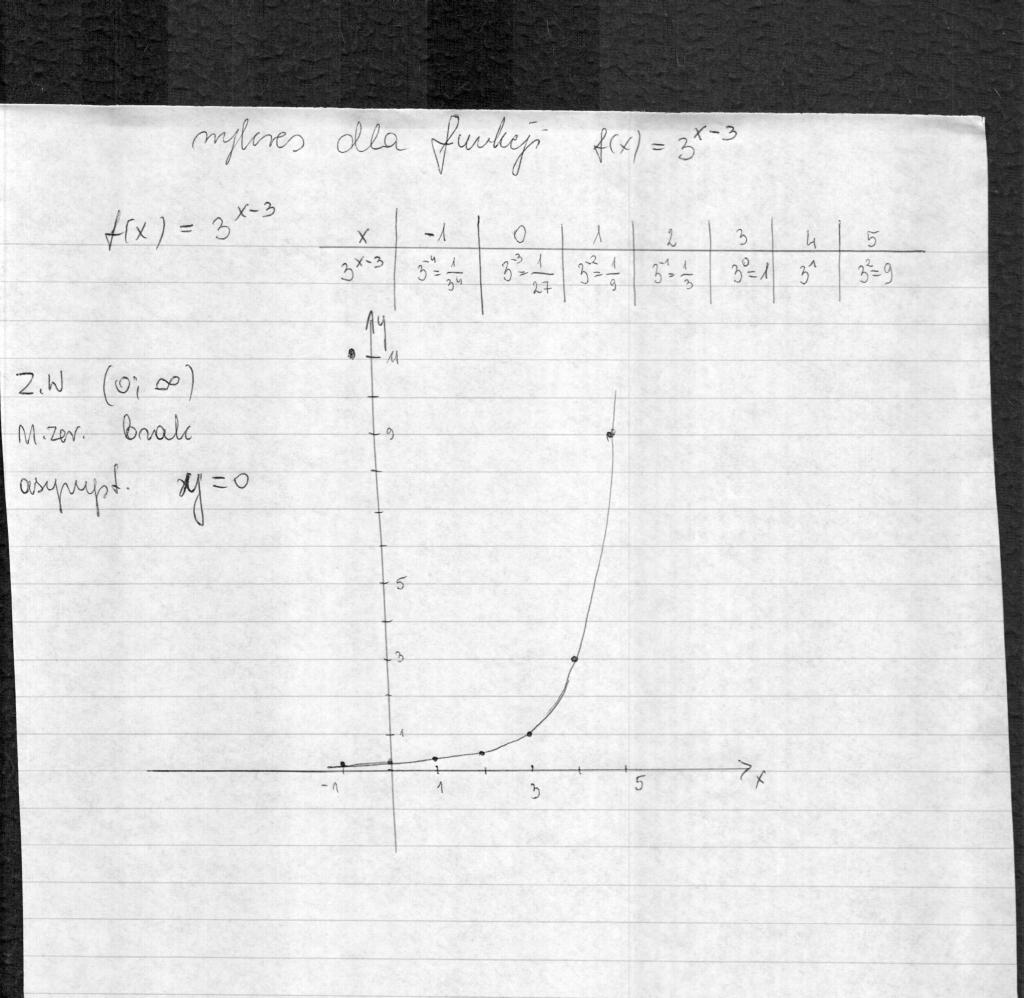 wykres dla funkcji f(x) = 3^{x-3}
f(x) = 3^{x-3}
x -1 0 1 2 3 4 5
3^{x-3} 3^{-4}=1/3^4 3^{-3}=1/27 3^{-2}=1/9 3^{-1}=1/3 3^0=1 3^1 3^2=9
y
11
Z.W (0; ∞)
M.zer. brak
9
asympt. y=0
5
3
1
-1 1 3 5 x